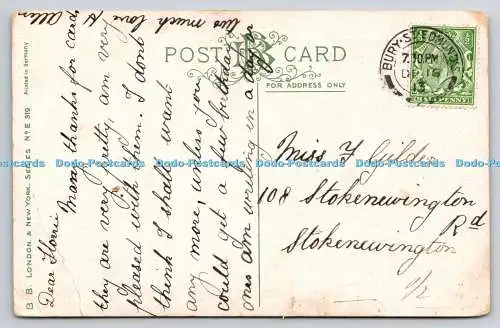 POST CARD
FOR ADDRESS ONLY
B B LONDON & NEW YORK. SERIES No E 319
Printed in Germany
BURY ST EDMUNDS
7.10 PM
13
HALFPENNY
Dear Florri
Many thanks for cards
they are very pretty, am very
pleased with them. I dont
think I shall want
any more, unless you
could get a few birthday
ones Am writing in a day or
two much love
Miss F
108 Stokenewington
Rd
Stokenewington
Dodo-Postcards
Dodo-Postcards
Dodo-Postcards
Dodo-Postcards
Dodo-Postcards
Dodo-Postcards